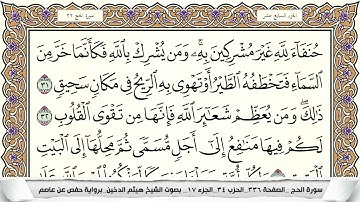 الجزء السابع عشر
سورة الحج ٢٢
حُنَفَآءَ لِلَّهِ غَيْرَ مُشْرِكِينَ بِهِۦۚ وَمَن يُشْرِكْ بِٱللَّهِ فَكَأَنَّمَا خَرَّ مِنَ
ٱلسَّمَآءِ فَتَخْطَفُهُ ٱلطَّيْرُ أَوْ تَهْوِى بِهِ ٱلرِّيحُ فِى مَكَانٍ سَحِيقٍ
٣١ ذَٰلِكَۖ وَمَن يُعَظِّمْ شَعَٰٓئِرَ ٱللَّهِ فَإِنَّهَا مِن تَقْوَى ٱلْقُلُوبِ
٣٢ لَكُمْ فِيهَا مَنَٰفِعُ إِلَىٰٓ أَجَلٍ مُّسَمًّى ثُمَّ مَحِلُّهَآ إِلَى ٱلْبَيْتِ
سورة الحج _ الصفحة ٣٣٦_ الحزب ٣٤_ الجزء ١٧_ بصوت الشيخ هيثم الدخين _ برواية حفص عن عاصم